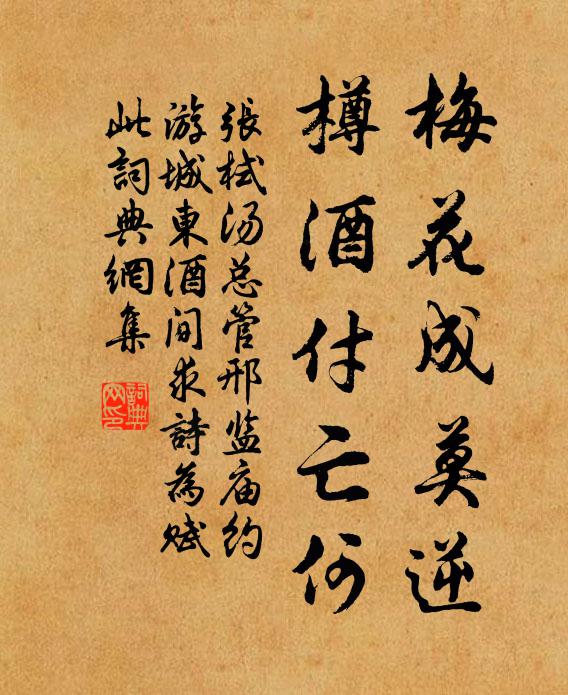 梅花成莫逆
樽酒付亡何
張栻汤总管邢监庙约
游城東酒间求詩為赋
此詞典網集
詞典
网印